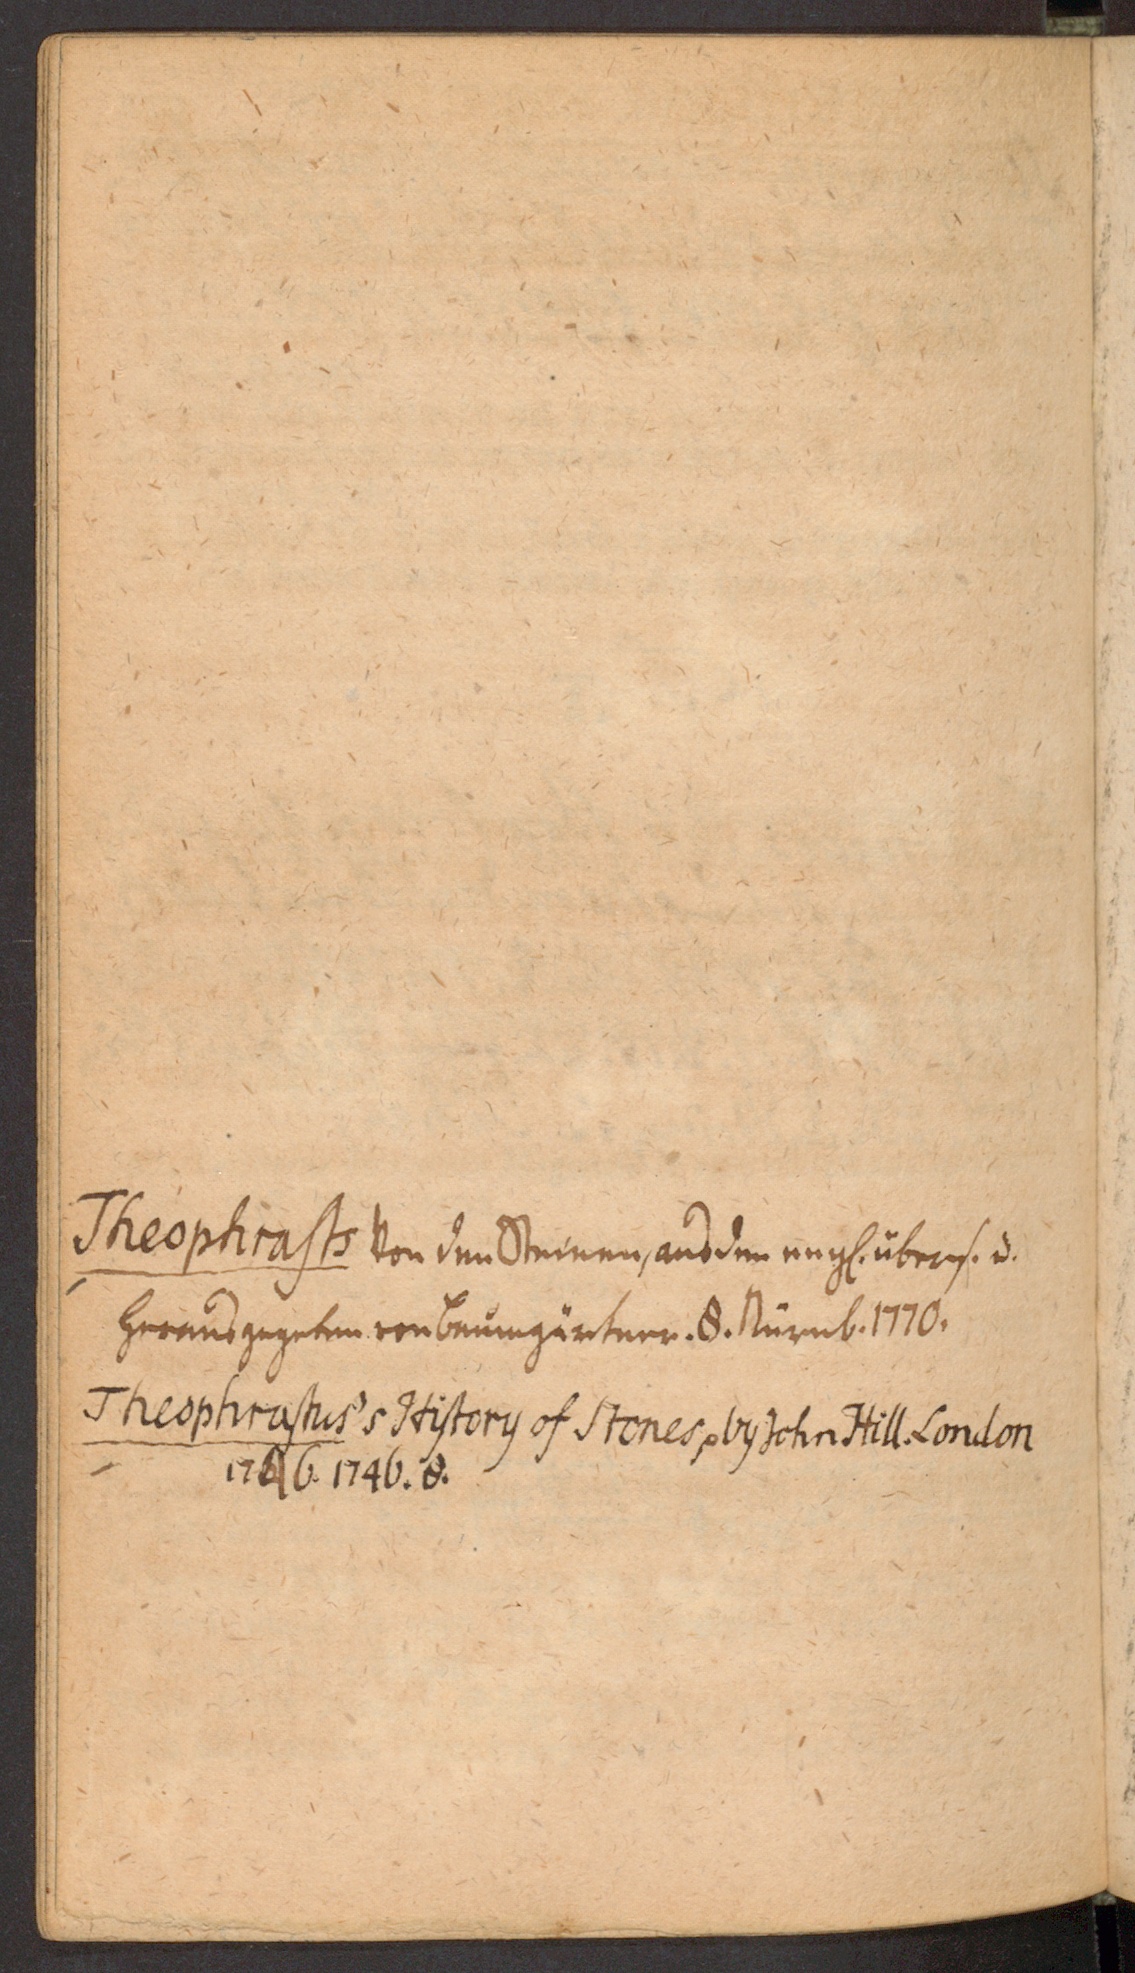 Theophrasts Von den Steinen, aus dem engl. übers. u.
herausgegeben von Baumgärtner. 8. Nürnb. 1770.
Theophrastus's History of Stones, by John Hill. London
1746. 1746. 8.